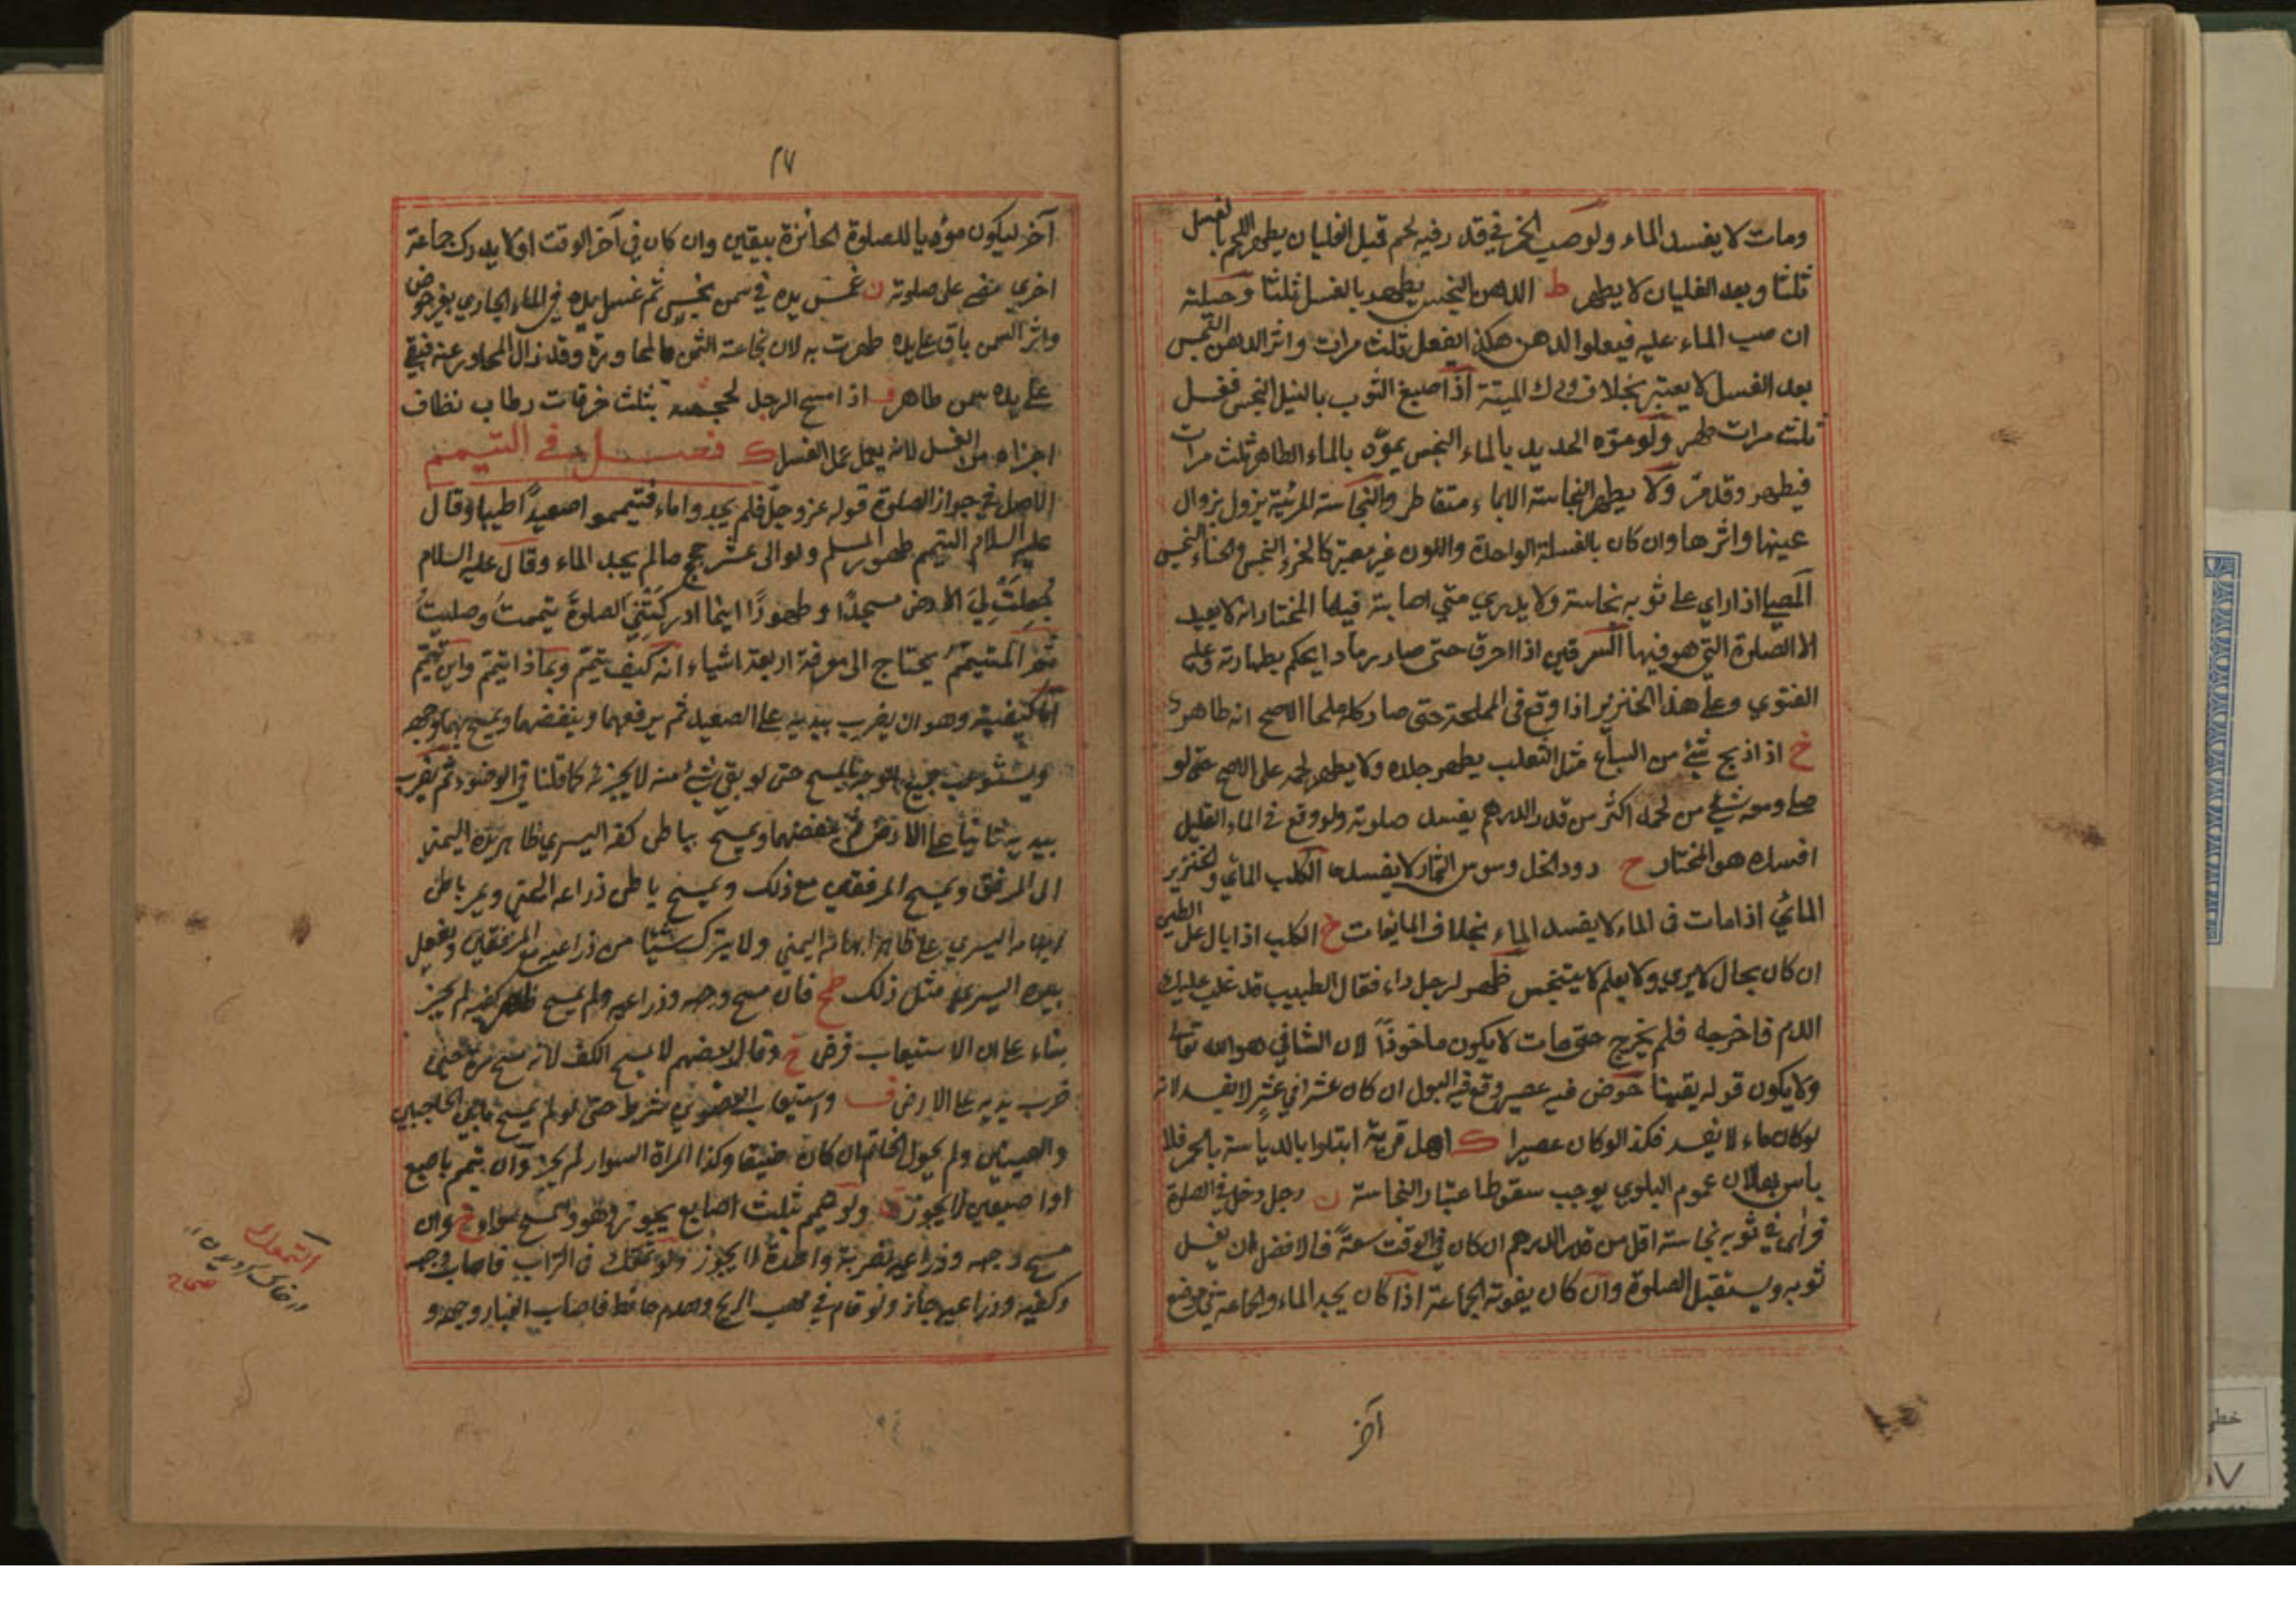 ومات لا يفسد الماء ولو صب الخمر في قدر فيه لحم قبل الغليان يطهر اللحم بالغسل
ثلثا وبعد الغليان لا يطهر ط الدهن النجس يطهر بالغسل ثلثا وحيلته
ان صب الماء عليه فيعلو الدهن هكذا يفعل ثلث مرات واثر الدهن النجس
بعد الغسل لا يعتبر بخلاف ودك الميتة اذا صبغ الثوب بالنيل النجس فغسل
ثلث مرات طهر ولو موّه الحديد بالماء النجس يموّه بالماء الطاهر ثلث مرات
فيطهر وقد مرّ ولا يطهر النجاسة الا بماء متقاطر والنجاسة المرئية يزول بزوال
عينها واثرها وان كان بالغسلة الواحدة واللون غير معتبر كالخرء النجس والحناء النجس
المصلي اذا راي على ثوبه نجاسة ولا يدري متي اصابته فيها المختار انه لا يعيد
الا الصلوة التي هو فيها السرقين اذا احرق حتى صار رمادا يحكم بطهارته وعليه
الفتوي وعلى هذا الخنزير اذا وقع في المملحة حتى صار كله ملحا الاصح انه طاهر
خ اذا ذبح شئ من السباع مثل الثعلب يطهر جلده ولا يطهر لحمه على الاصح حتى لو
صلى ومعه شئ من لحمه اكثر من قدر الدرهم يفسد صلوته ولو وقع في الماء القليل
افسده هو المختار ح دود الخل وسوس الثمار لا يفسدها الكلب المائي والخنزير
المائي اذا مات في الماء لا يفسد الماء بخلاف المايعات خ الكلب اذا بال على الطين
ان كان بحال لا يري ولا يعلم لا يتنجس ظهر لرجل داء فقال الطبيب قد غلب عليك
الدم فاخرجه فلم يخرج حتى مات لا يكون ماخوذاً لان الشافي هو الله تعالى
ولا يكون قوله يقيناً حوض فيه عصير وقع فيه البول ان كان عشرا في عشر لا يفسد لانه
لو كان ماء لا يفسد فكذا لو كان عصيرا ك اهل قرية ابتلوا بالدياسة بالحمر فلا
باس به لان عموم البلوي يوجب سقوط اعتبار النجاسة ن رجل دخل في الصلوة
فرأى في ثوبه نجاسة اقل من قدر الدرهم ان كان في الوقت سعةً فالافضل ان يغسل
ثوبه ويستقبل الصلوة وان كان يفوته الجماعة اذا كان يجد الماء والجماعة في موضع
آخر
٢٧
آخر ليكون مؤديا للصلوة الجائزة بيقين وان كان في آخر الوقت او لا يدرك جماعة
اخري مضى على صلوته ن غمس يده في سمن نجس ثم غسل يده في الماء الجاري بغير حرض
واثر السمن باق على يده طهرت به لان نجاسة السمن بالمجاورة وقد زال المجاور عنه فبقي
على يده سمن طاهر اذا مسح الرجل محجمه بثلث خرقات رطاب نظاف
اجزاه من الغسل لانه يعمل عمل الغسل ك فصل في التيمم
الاصل في جواز الصلوة قوله عز وجل فلم يجدوا ماء فتيمموا صعيداً طيبا وقال
عليه السلام التيمم طهور المسلم ولو الى عشر حجج مالم يجد الماء وقال عليه السلام
جُعلت لِيَ الارض مسجدًا وطهورًا اينما ادركتني الصلوة تيممتُ وصليتُ
ثم المتيمم يحتاج الى معرفة اربعة اشياء انه كيف يتيمم وبماذا يتيمم واين يتيمم
اما كيفيته وهو ان يضرب بيديه على الصعيد ثم يرفعهما وينفضهما ويمسح بهما وجهه
ويستوعب جميع الوجه بالمسح حتى لو بقي شئ منه لا يجزئه كما قلنا في الوضوء ثم يضرب
بيديه ثانيا على الارض ثم ينفضهما ويمسح بباطن كفه اليسري ظاهر يده اليمني
الى المرفق ويمسح المرفقين مع ذلك ويمسح باطن ذراعه اليمني ويمر باطن
ابهامه اليسري على ظاهر ابهامه اليمني ولا يترك شيئا من ذراعيه مع المرفقين ويفعل
بيده اليسري مثل ذلك طح فان مسح وجهه وذراعيه ولم يمسح ظهر كفيه لم يجز
بناء على ان الاستيعاب فرض خ وقال بعضهم لا يمسح الكف لانه مسح مرة حين
ضرب يديه على الارض ف واستيعاب العضوين شرط حتى لو لم يمسح ما بين الحاجبين
والعينين ولم يحول الخاتم ان كان ضيقا وكذا المراة السوار لم يجز وان تيمم باصبع
او اصبعين لا يجوز ولو تيمم بثلث اصابع يجوز وهو والمسح سواء خ وان
مسح وجهه وذراعيه بضربة واحدة لا يجوز ولو تمعك في التراب فاصاب وجهه
وكفيه وذراعيه جاز ولو قام في مهب الريح او هدم حائط فاصاب الغبار وجهه و
التمعك